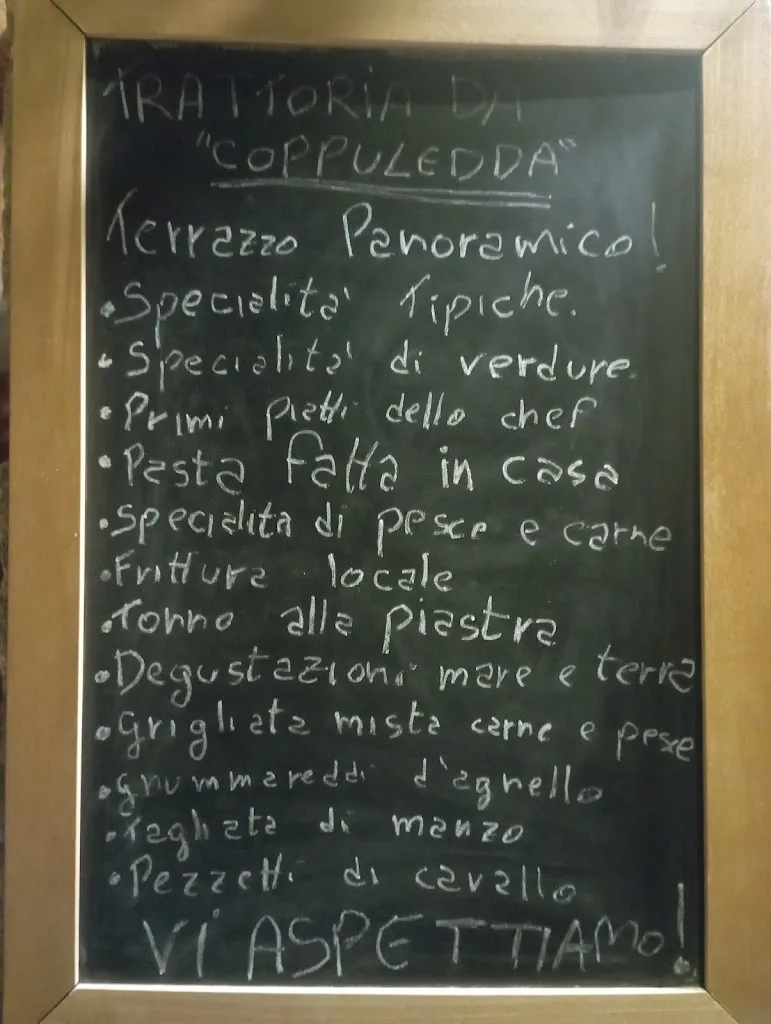 TRATTORIA DA
"COPPULEDDA"
Terrazzo Panoramico!
• Specialita' Tipiche.
• Specialita' di verdure.
• Primi piatti dello chef
• Pasta fatta in casa
• specialità di pesce e carne
• Frittura locale
• Tonno alla piastra
• Degustazioni mare e terra
• Grigliata mista carne e pesce
• gnummareddi d'agnello
• Tagliata di manzo
• Pezzetti di cavallo
Vi ASPETTIAMO!